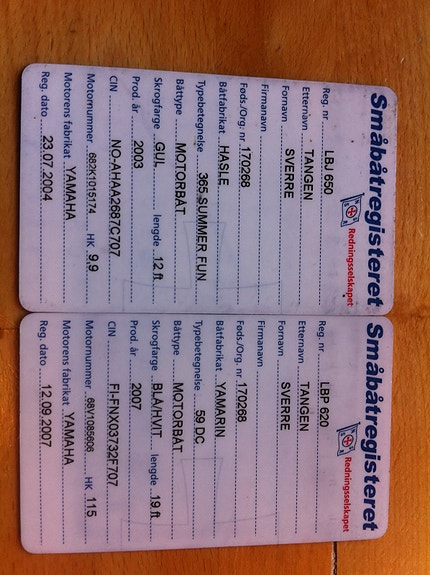 Småbåtregisteret
Redningsselskapet
Reg. nr LBJ 650
Etternavn TANGEN
Fornavn SVERRE
Firmanavn
Føds./Org. nr 170268
Båtfabrikat HASLE
Typebetegnelse 365 SUMMER FUN
Båttype MOTORBÅT
Skrogfarge GUL lengde 12 ft
Prod. år 2003
CIN NO-AHAA2687C707
Motornummer 682K1015174 HK 9.9
Motorens fabrikat YAMAHA
Reg. dato 23.07.2004
Småbåtregisteret
Redningsselskapet
Reg. nr LBP 620
Etternavn TANGEN
Fornavn SVERRE
Firmanavn
Føds./Org. nr 170268
Båtfabrikat YAMARIN
Typebetegnelse 59 DC
Båttype MOTORBÅT
Skrogfarge BLÅ/HVIT lengde 19 ft
Prod. år 2007
CIN FI-FNX03732F707
Motornummer 68V1085606 HK 115
Motorens fabrikat YAMAHA
Reg. dato 12.09.2007